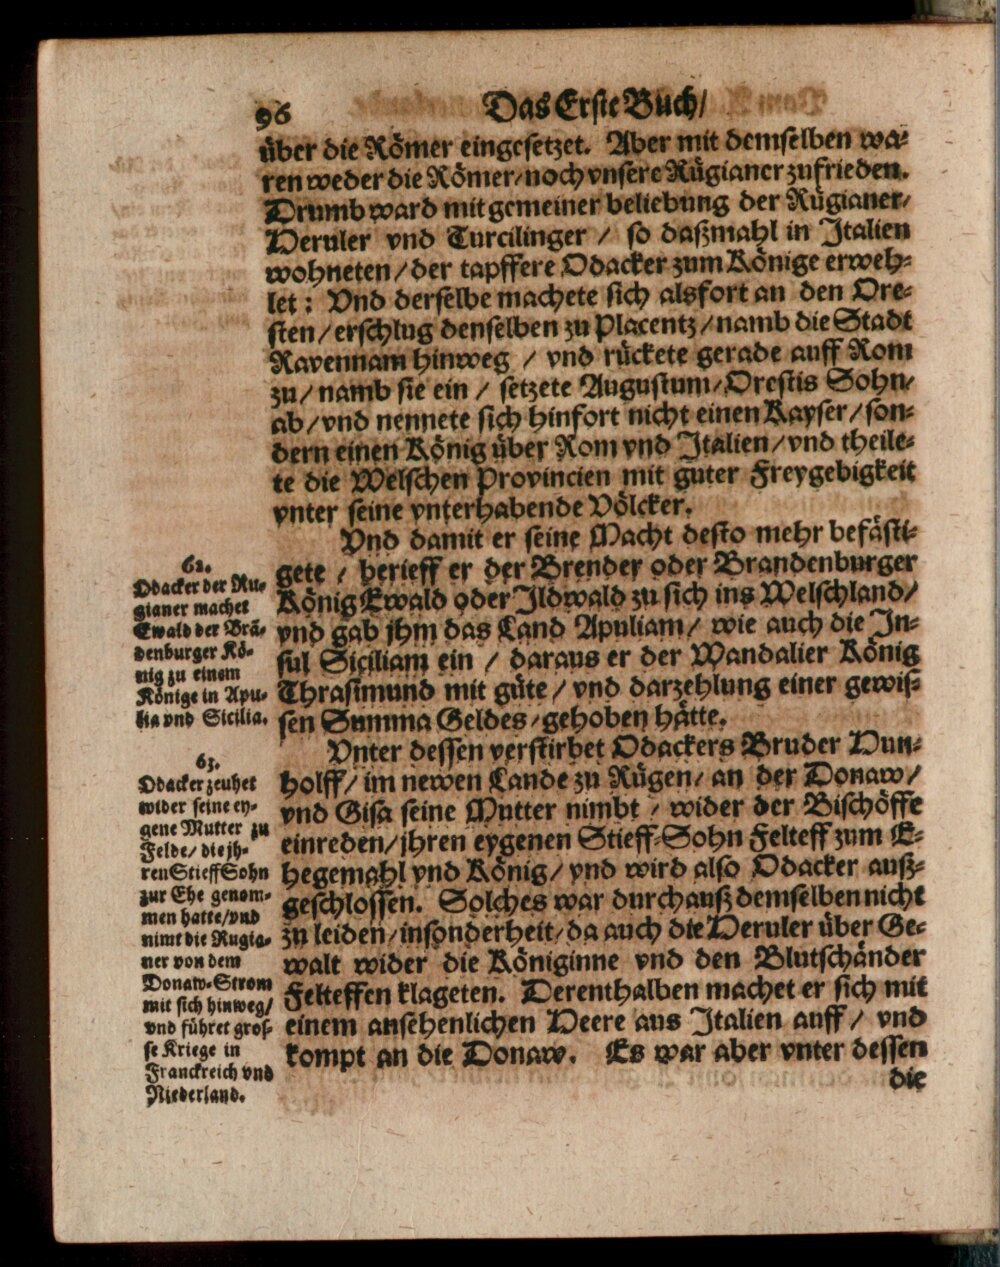 96 Das Erste Buch/
über die Römer eingesetzet. Aber mit demselben wa-
ren weder die Römer/noch vnsere Rügianer zufrieden.
Drumb ward mit gemeiner beliebung der Rügianer/
Heruler vnd Turcilinger / so daßmahl in Italien
wohneten/der tapffere Odacker zum Könige erweh-
let: Vnd derselbe machete sich alsfort an den Ore-
sten/erschlug denselben zu Placentz/namb die Stadt
Ravennam hinweg / vnd rückete gerade auff Rom
zu/namb sie ein / setzete Augustum/Orestis Sohn/
ab/vnd nennete sich hinfort nicht einen Kayser/son-
dern einen König über Rom vnd Italien/vnd theile-
te die Welschen Provincien mit guter Freygebigkeit
vnter seine vnterhabende Völcker.
Vnd damit er seine Macht desto mehr befästi-
gete / berieff er der Brender oder Brandenburger
König Ewald oder Ildwald zu sich ins Welschland/
vnd gab jhm das Land Apuliam/ wie auch die In-
sul Siciliam ein / daraus er der Wandalier König
Thrasimund mit güte/vnd darzehlung einer gewis-
sen Summa Geldes/gehoben hätte.
Vnter dessen verstirbet Odackers Bruder Hun-
holff/im newen Lande zu Rügen/ an der Donaw/
vnd Gisa seine Mutter nimbt / wider der Bischöffe
einreden/jhren eygenen Stieff-Sohn Felteff zum E-
hegemahl vnd König/vnd wird also Odacker auß-
geschlossen. Solches war durchauß demselben nicht
zu leiden/insonderheit/da auch die Heruler über Ge-
walt wider die Königinne vnd den Blutschänder
Felteffen klageten. Derenthalben machet er sich mit
einem ansehenlichen Heere aus Italien auff/ vnd
kompt an die Donaw. Es war aber vnter dessen
die
62.
Odacker der Ru-
gianer machet
Ewald der Brä-
denburger Kö-
nig zu einem
Könige in Apu-
lia vnd Sicilia.
63.
Odacker zeuhet
wider seine ey-
gene Mutter zu
Felde/ die jh-
ren StieffSohn
zur Ehe genom-
men hatte/vnd
nimt die Rugia-
ner von dem
Donaw-Strom
mit sich hinweg/
vnd führet gros-
se Kriege in
Franckreich vnd
Niederland.